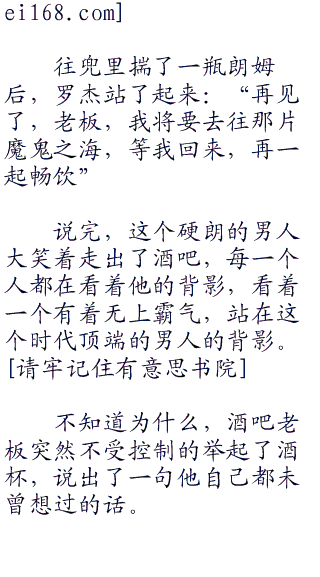 ei168.com]
往兜里揣了一瓶朗姆
后，罗杰站了起来：“再见
了，老板，我将要去往那片
魔鬼之海，等我回来，再一
起畅饮”
说完，这个硬朗的男人
大笑着走出了酒吧，每一个
人都在看着他的背影，看着
一个有着无上霸气，站在这
个时代顶端的男人的背影。
[请牢记住有意思书院]
不知道为什么，酒吧老
板突然不受控制的举起了酒
杯，说出了一句他自己都未
曾想过的话。